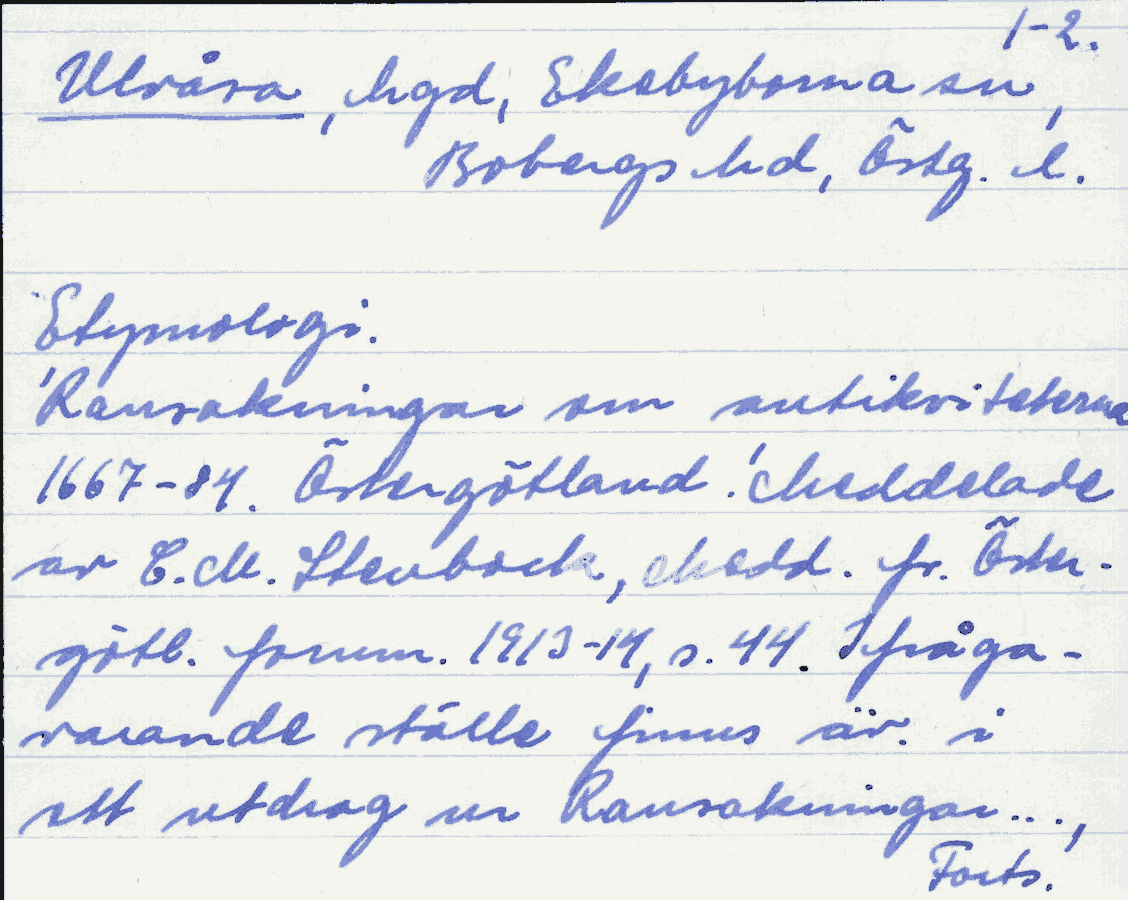 1-2.
Ulvåsa, hgd, Ekebyborna sn,
Bobergs hd, Östg. l.
Etymologi.
'Ransakningar om antikviteterna
1667-84. Östergötland.' Meddelade
av C.M. Stenbock, Medd. fr. Öster-
götl. fornm. 1913-14, s. 44. Ifråga-
varande ställe finns äv. i
ett utdrag ur Ransakningar...,
Forts.